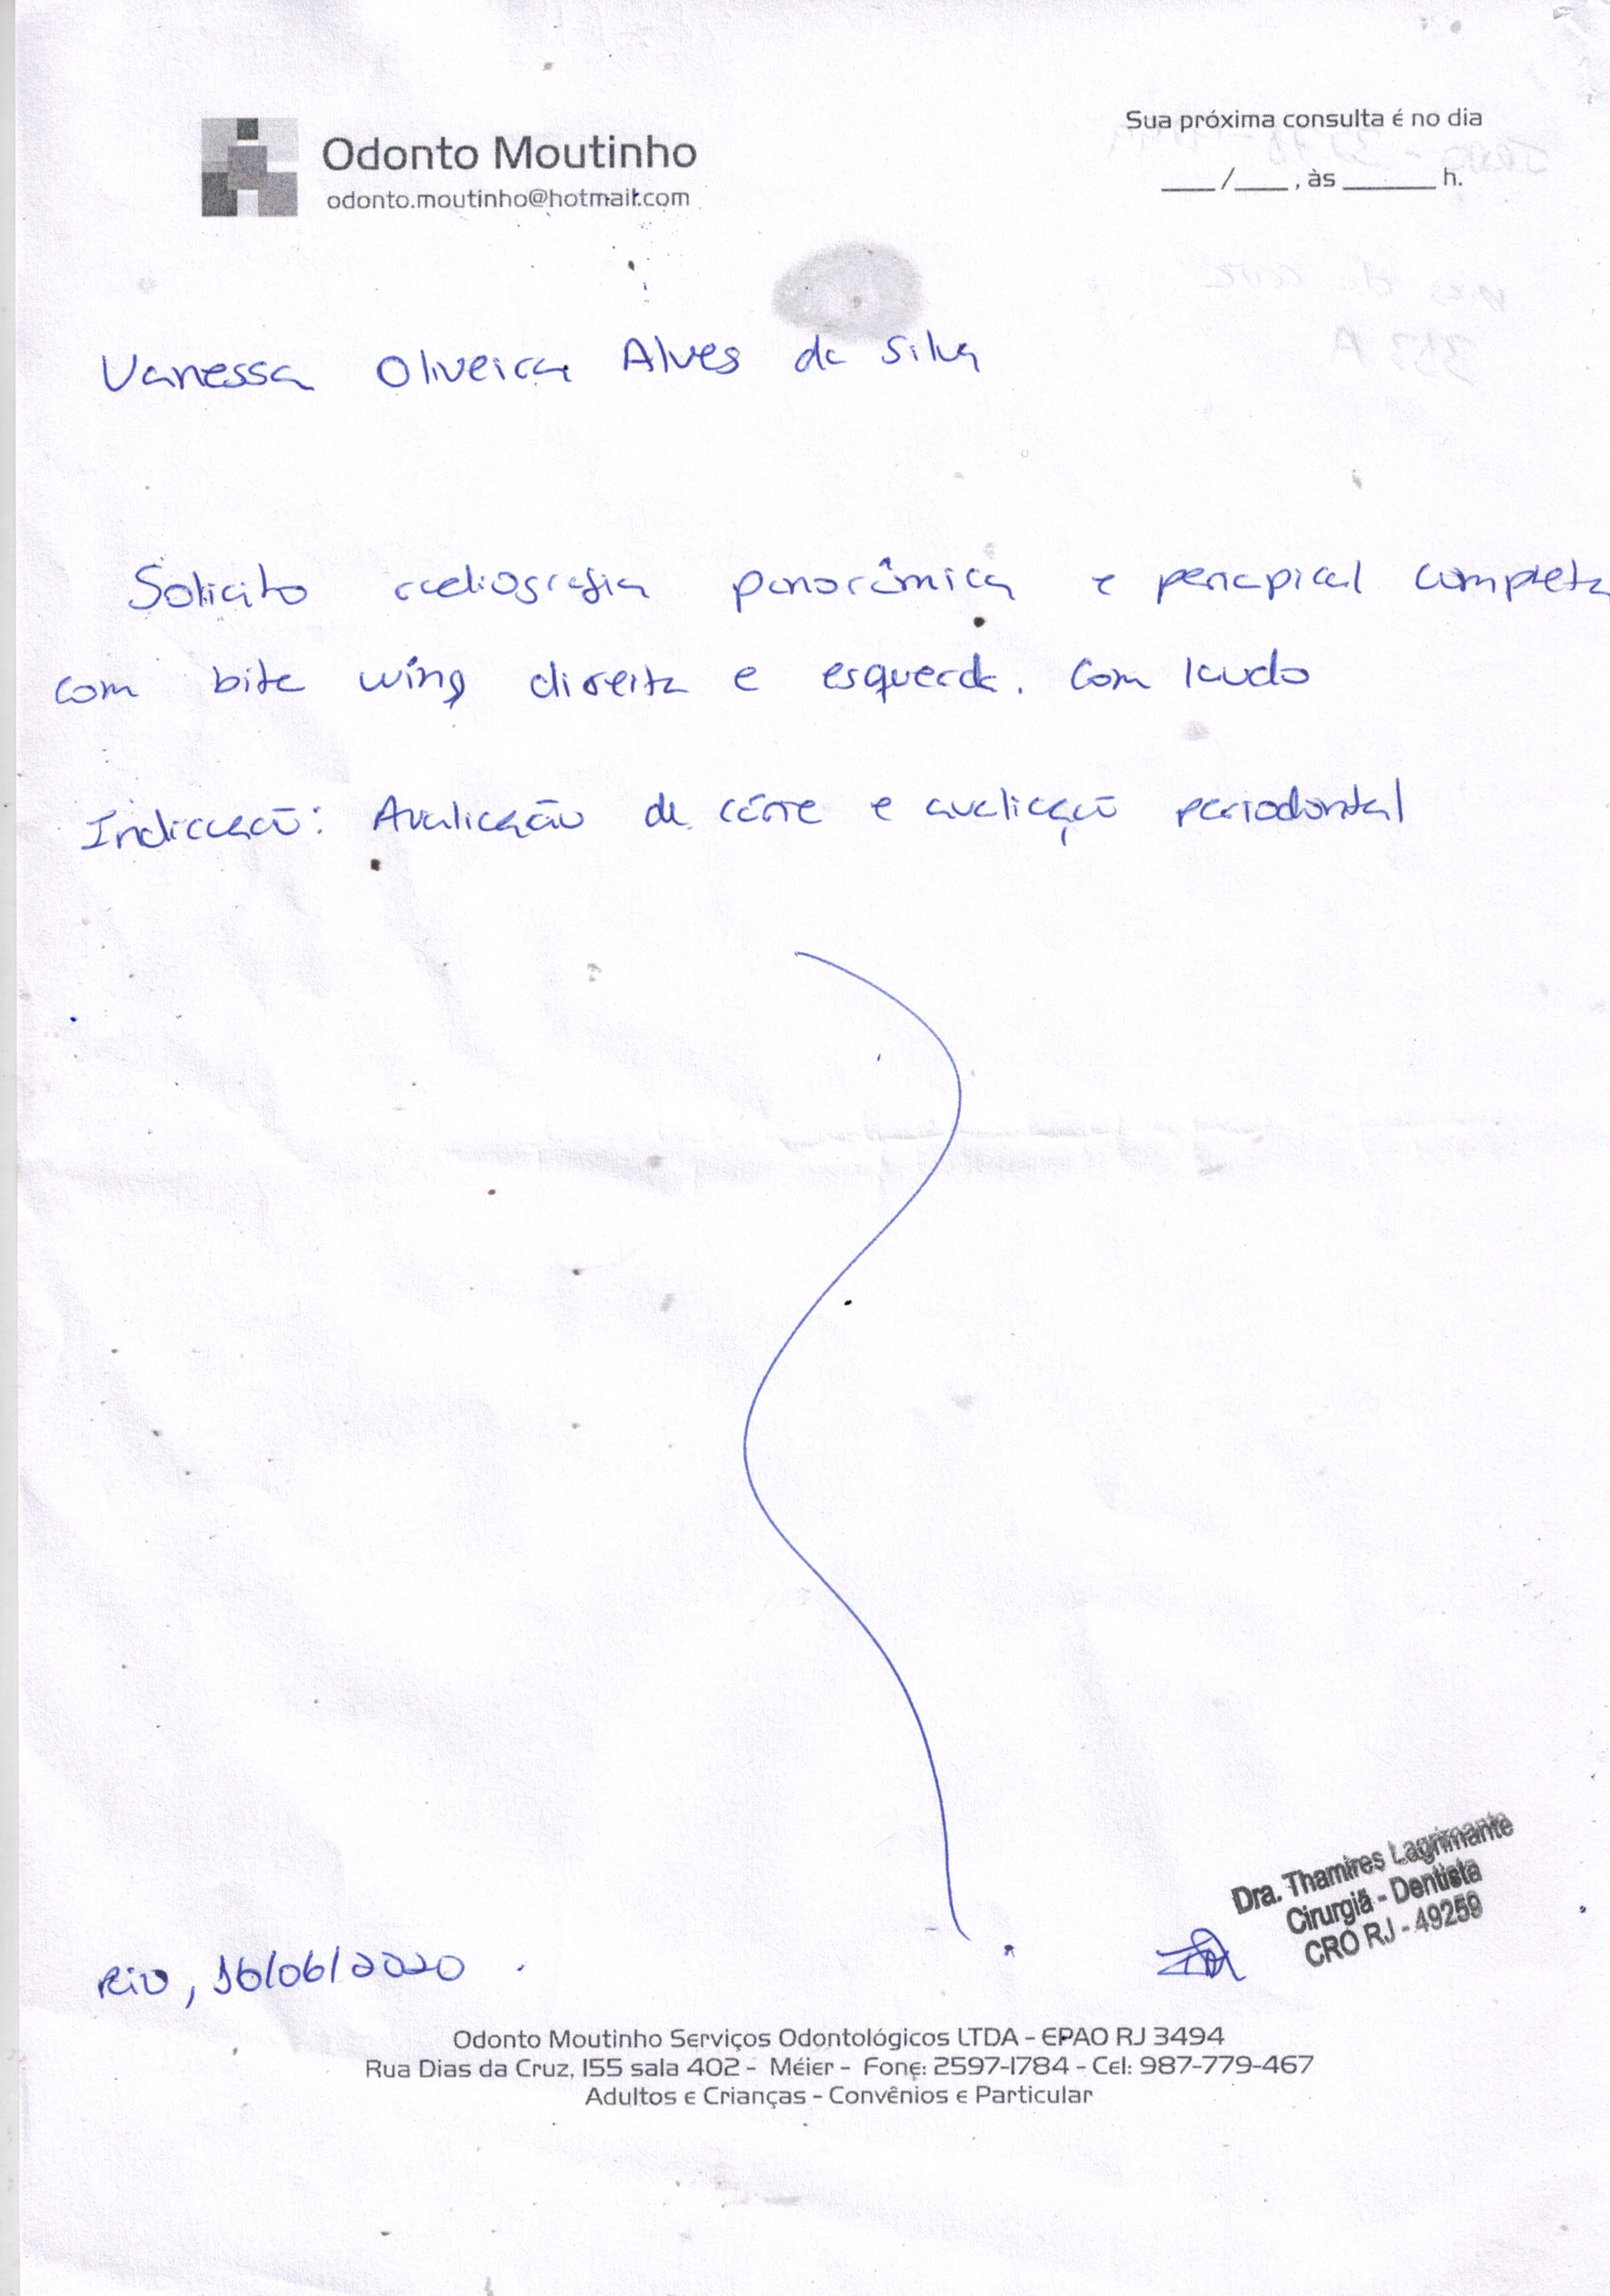 Odonto Moutinho
odonto.moutinho@hotmail.com
Sua próxima consulta é no dia
___/___, às ______ h.
Vanessa Oliveira Alves da Silva
Solicito radiografia panorâmica e periapical completa
com bite wing direita e esquerda. Com laudo
Indicação: Avaliação de cárie e avaliação periodontal
Dra. Thamires Lagrimante
Cirurgiã - Dentista
CRO RJ - 49259
Rio, 16/06/2020.
Odonto Moutinho Serviços Odontológicos LTDA - EPAO RJ 3494
Rua Dias da Cruz, 155 sala 402 - Méier - Fone: 2597-1784 - Cel: 987-779-467
Adultos e Crianças - Convênios e Particular